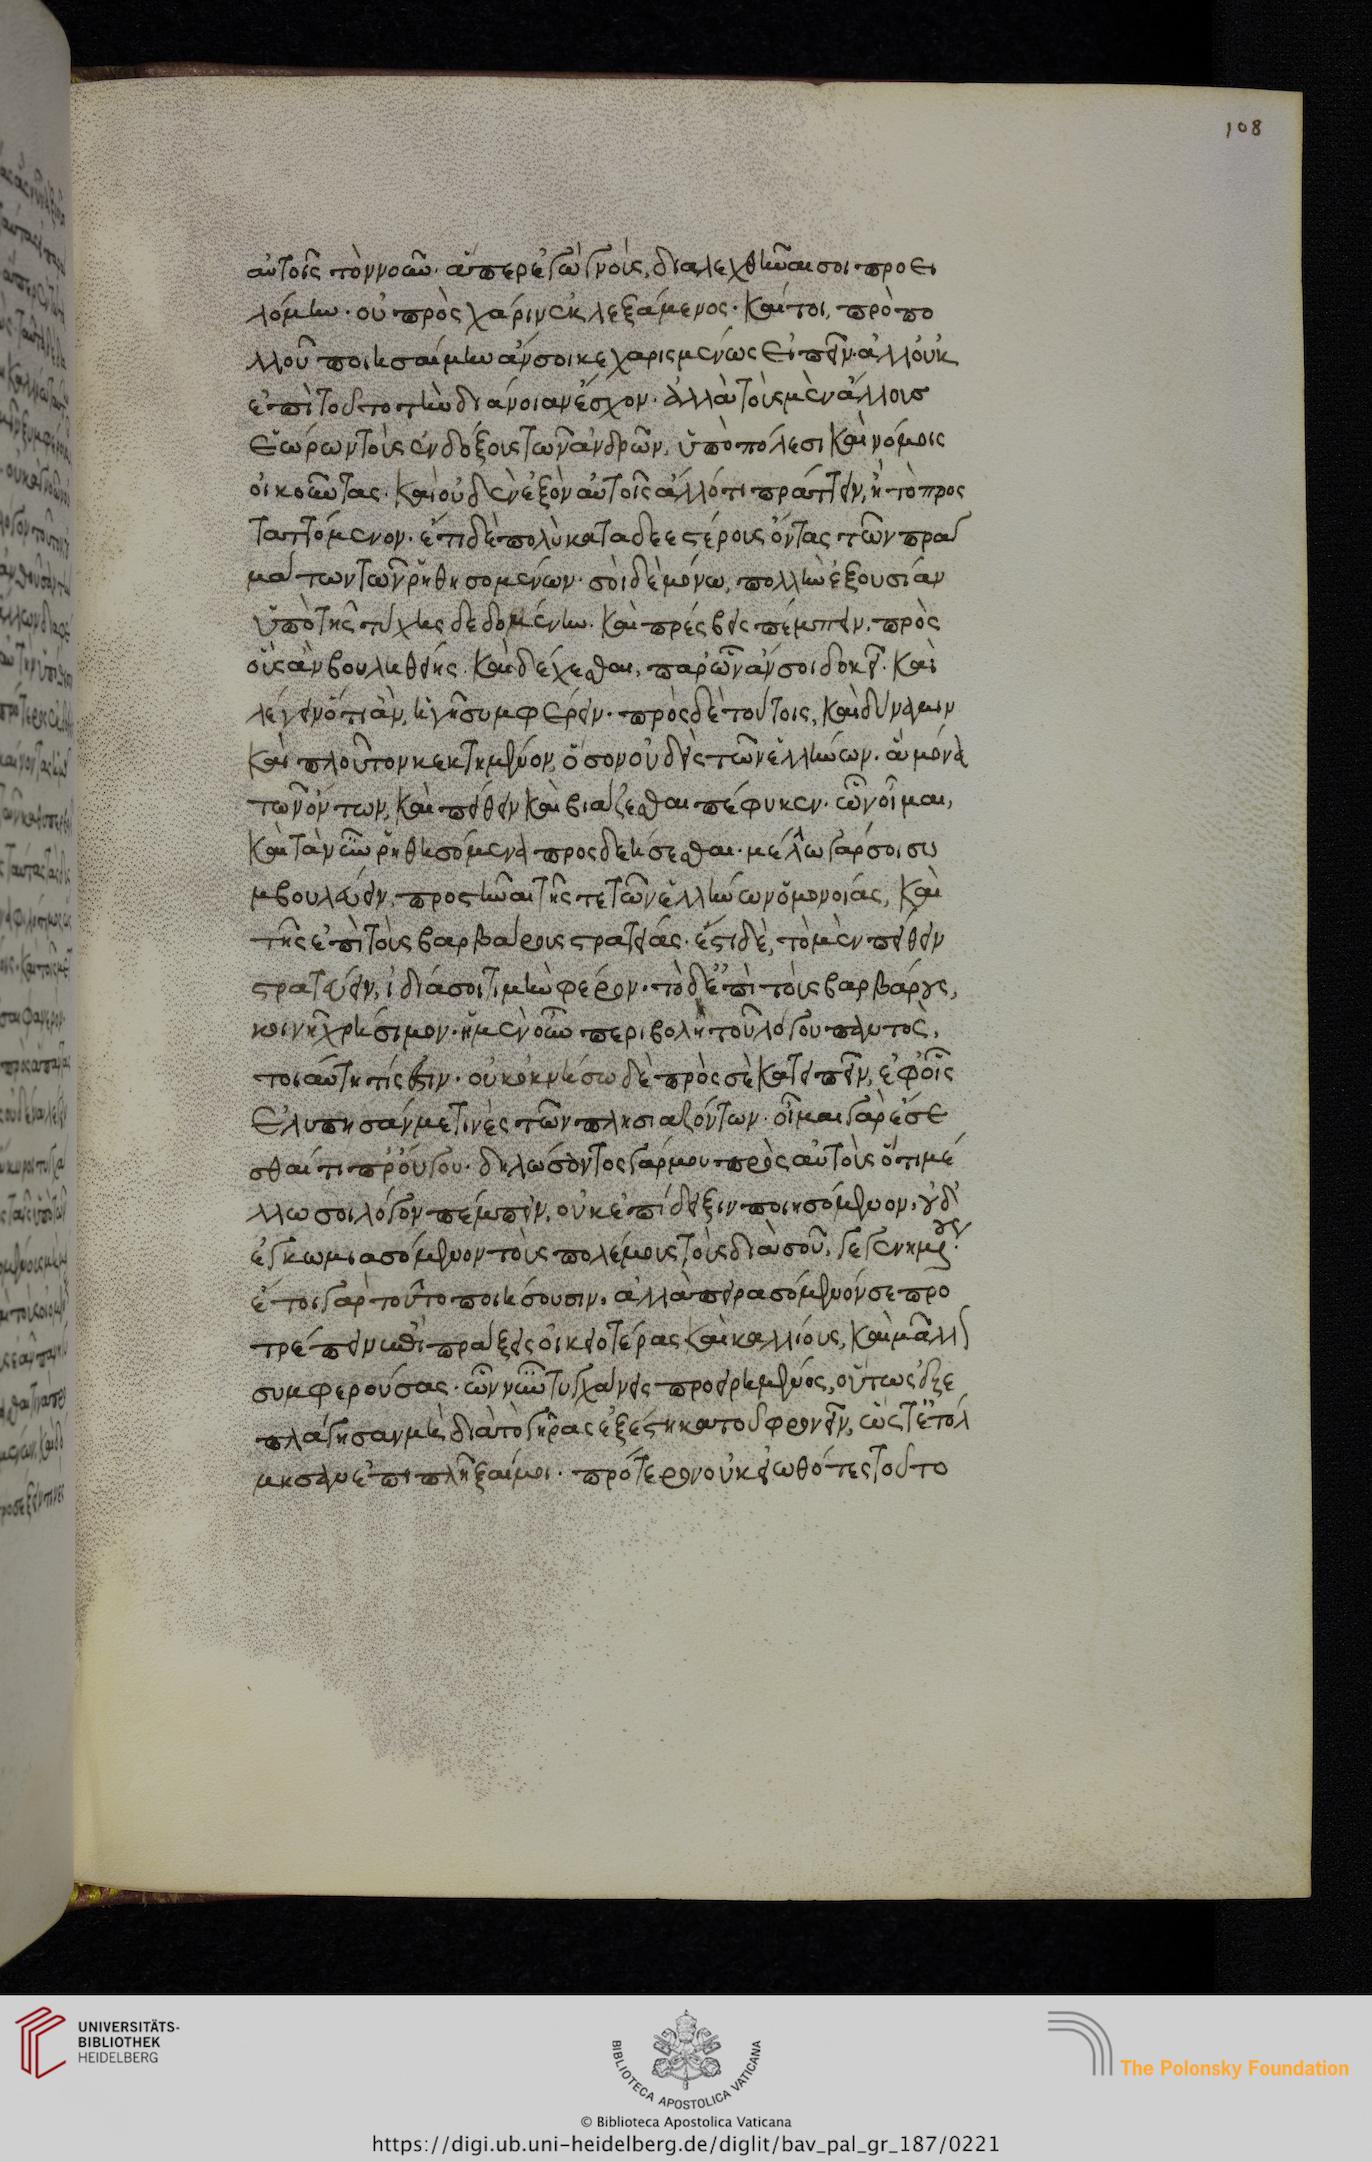 108
αὐτοῖς τὸν νοῦν· ἅπερ ἐγὼ γνοὺς, διαλεχθῆναι σοι προει
λόμην· οὐ πρὸς χάριν ἐκλεξάμενος· καίτοι, πρὸ πο
λλοῦ ποιησαίμην ἄν σοι κεχαρισμένως εἰπεῖν· ἀλλ' οὐκ
ἐπὶ τούτω τὴν διάνοιαν ἔσχον· ἀλλὰ τοὺς μὲν ἄλλους
ἑώρων τοὺς ἐνδόξους τῶν ἀνδρῶν, ὑπὸ πόλεσι καὶ νόμοις
οἰκοῦντας· καὶ οὐδὲν ἐξὸν αὐτοῖς ἄλλό τι πράττειν, ἢ τὸ προς
ταττόμενον· ἔτι δὲ πολὺ καταδεεστέρους ὄντας τῶν πραγ
μάτων τῶν ῥηθησομένων· σοὶ δὲ μόνω, πολλὴν ἐξουσίαν
ὑπὸ τῆς τύχης δεδομένην· καὶ πρέσβεις πέμπειν, πρὸς
οὓς ἂν βουληθείης· καὶ δέχεσθαι, παρ' ὧν ἄν σοι δοκῆ· καὶ
λέγειν ὅτι ἂν, ἡγῆ συμφέρειν· πρὸς δὲ τούτοις, καὶ δύναμιν
καὶ πλοῦτον κεκτημένον, ὅσον οὐδεὶς τῶν ἑλλήνων· ἃ μόνα
τῶν ὄντων, καὶ πείθειν καὶ βιάζεσθαι πέφυκεν· ὧν οἶμαι,
καὶ τὰ νῦν ῥηθησόμενα προσδεήσεσθαι· μέλλω γάρ σοι συ
μβουλεύειν, προστῆναι τῆς τε τῶν ἑλλήνων ὁμονοίας, καὶ
τῆς ἐπὶ τοὺς βαρβάρους στρατείας· ἔστι δὲ, τὸ μὲν πείθειν
στρατεύειν, ἰδία σοι τιμὴν φέρον· τὸ δ' ἐπὶ τοὺς βαρβάρους,
κοινῆ χρήσιμον· ἡ μὲν οὖν περιβολὴ τοῦ λόγου παντὸς,
τοιαύτη τίς ἐστιν· οὐκ ὀκνήσω δὲ πρὸς σὲ κατειπεῖν, ἐφ' οἷς
ἐλύπησάν με τινὲς τῶν πλησιαζόντων· οἶμαι γὰρ ἔσε
σθαί τι πρὸὔργου· δηλώσαντος γάρ μου πρὸς αὐτοὺς ὅτι μέ
λλω σοι λόγον πέμπειν, οὐκ ἐπίδειξιν ποιησόμενον, οὐδ'
ἐγκωμιασόμενον τοὺς πολέμους τοὺς διὰ σοῦ, γεγενημένους·
ἕτοι γὰρ τοῦτο ποιήσουσιν, ἀλλὰ πειρασόμενόν σε προ
τρέπειν ἐπὶ πράξεις οἰκειοτέρας καὶ καλλίους, καὶ μᾶλλον
συμφερούσας· ὧν νῦν τυγχάνεις προειρημένος, οὕτως ἐξε
πλάγησαν μὴ διὰ τὸ γῆρας ἐξέστηκα τοῦ φρονεῖν, ὥστ' ἐτόλ
μησαν ἐπιπλῆξαί μοι· πρότερον οὐκ εἰωθότες τοῦτο
UNIVERSITÄTS-
BIBLIOTHEK
HEIDELBERG
BIBLIOTECA APOSTOLICA VATICANA
© Biblioteca Apostolica Vaticana
The Polonsky Foundation
https://digi.ub.uni-heidelberg.de/diglit/bav_pal_gr_187/0221